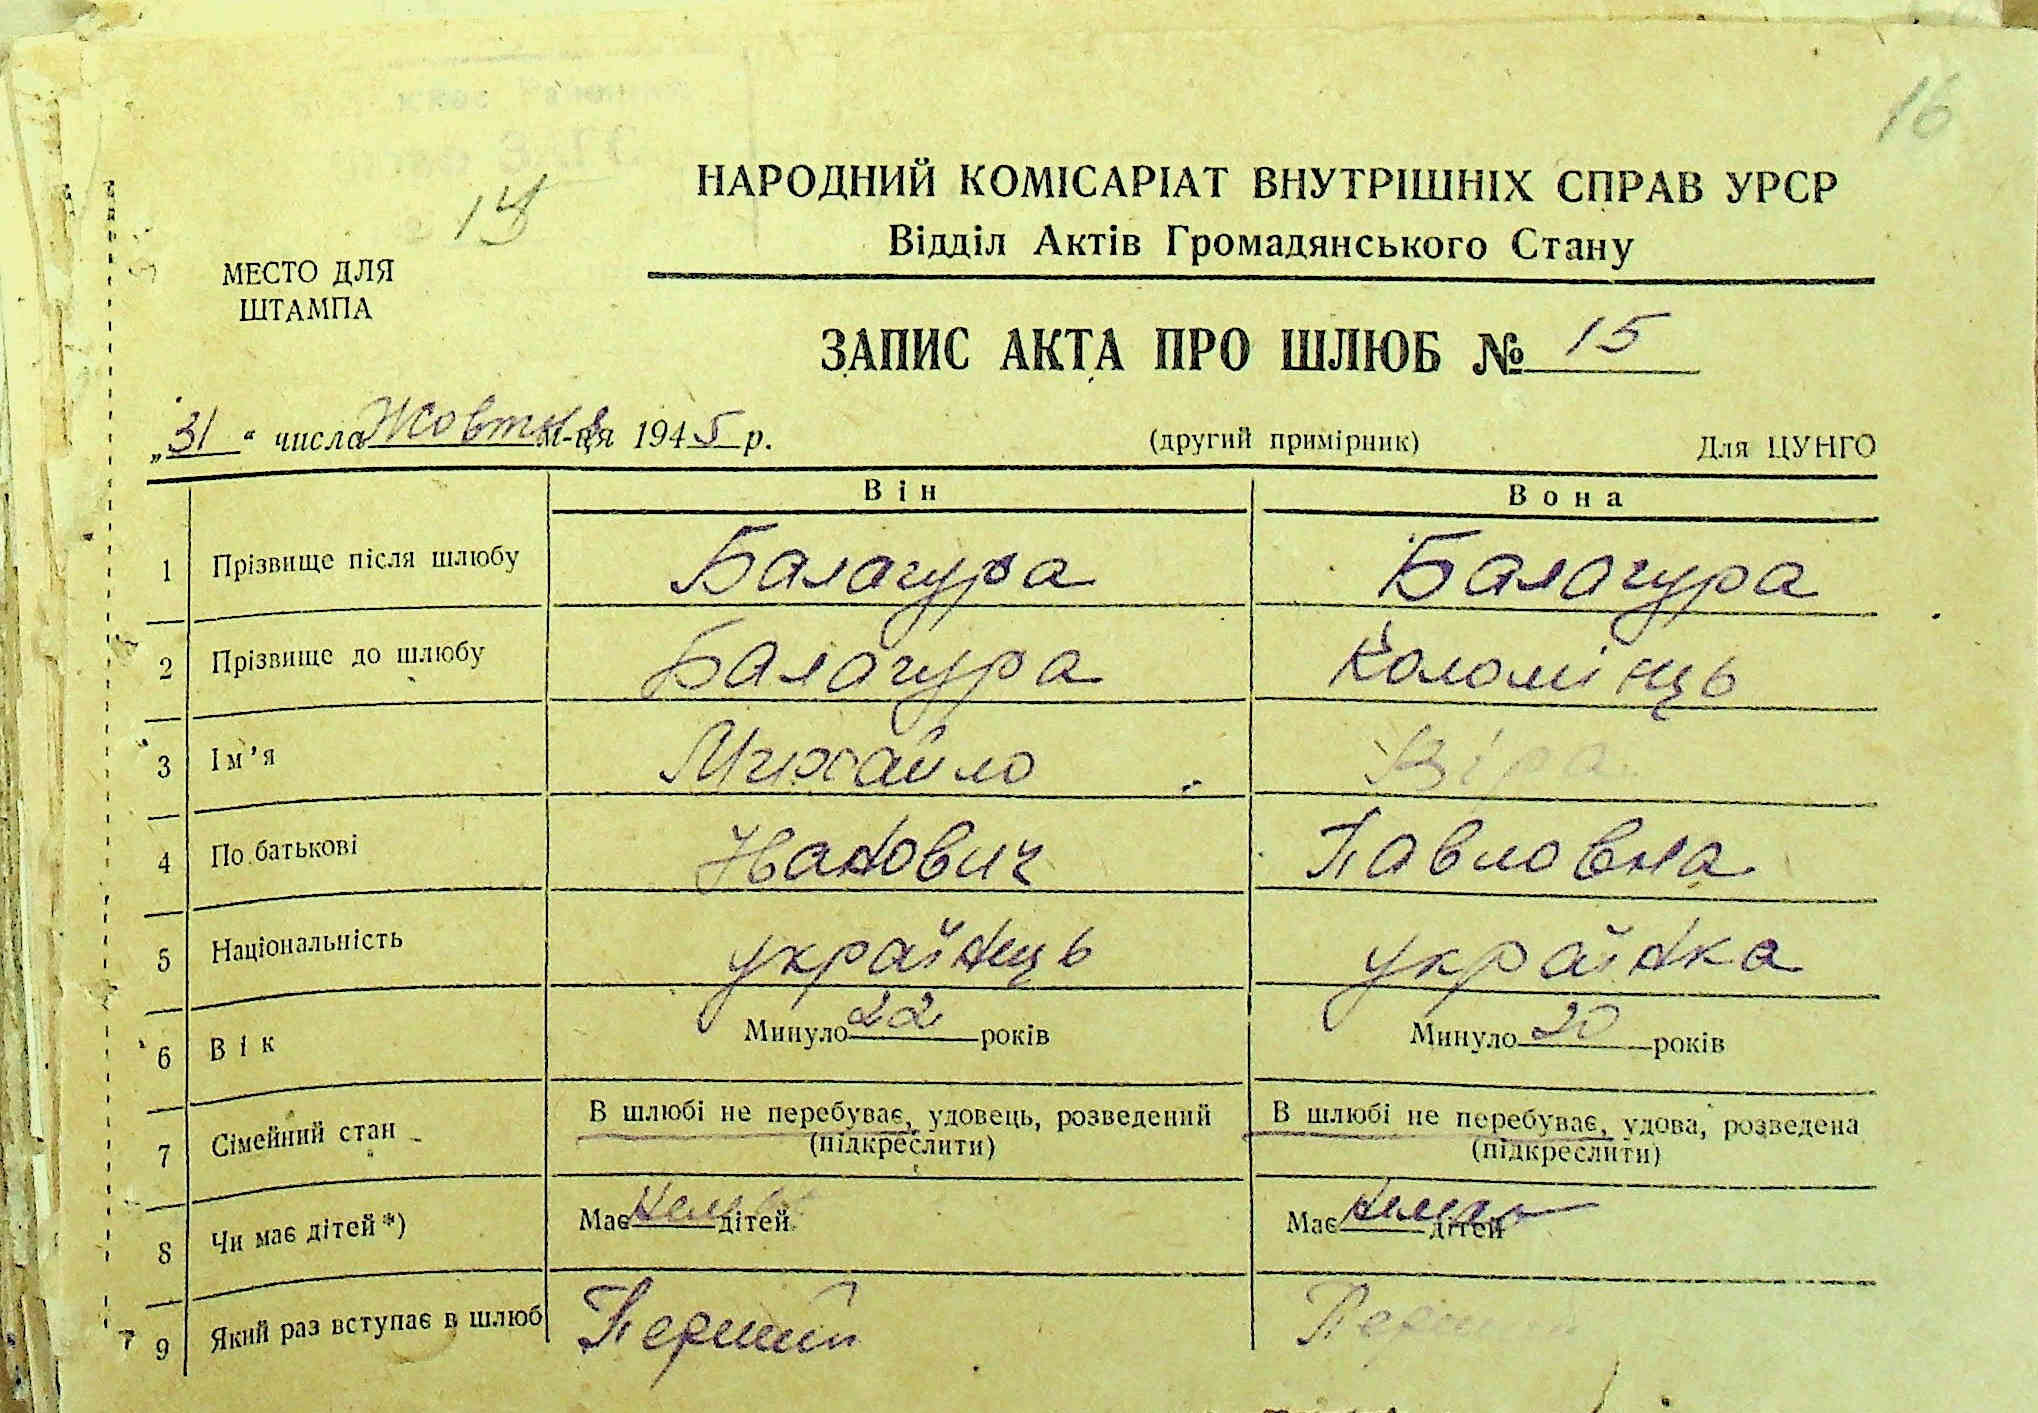 16
14
НАРОДНИЙ КОМІСАРІАТ ВНУТРІШНІХ СПРАВ УРСР
Відділ Актів Громадянського Стану
МЕСТО ДЛЯ
ШТАМПА
ЗАПИС АКТА ПРО ШЛЮБ № 15
„31" числа Жовтня м-ця 1945 р. (другий примірник) Для ЦУНГО
Він Вона
1 Прізвище після шлюбу Балагура Балагура
2 Прізвище до шлюбу Балагура Коломієць
3 Ім'я Михайло Віра
4 По батькові Іванович Павловна
5 Національність українець українка
6 Вік Минуло 22 років Минуло 20 років
7 Сімейний стан В шлюбі не перебуває, удовець, розведений (підкреслити) В шлюбі не перебуває, удова, розведена (підкреслити)
8 Чи має дітей*) Має немає дітей Має немає дітей
9 Який раз вступає в шлюб Перший Перший